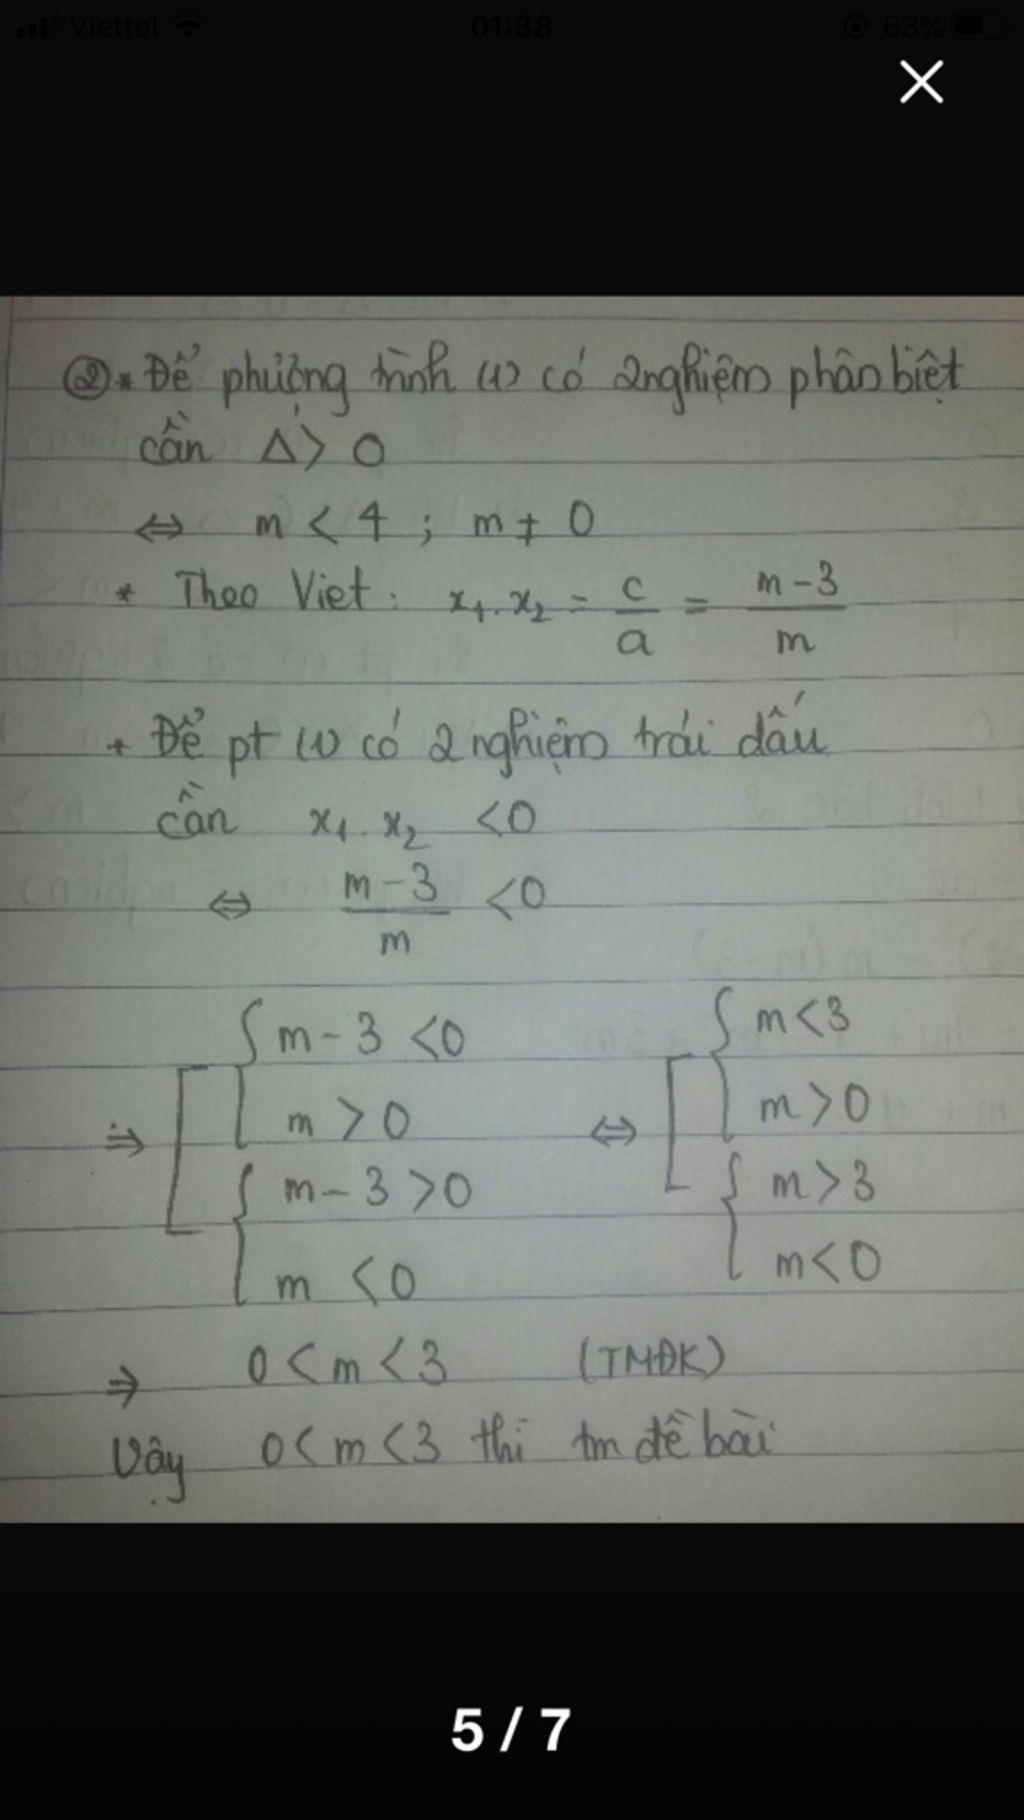 Viettel 01:38 63%
② * Để phương trình (1) có 2 nghiệm phân biệt
cần Δ' > 0
⇔ m < 4 ; m ≠ 0
* Theo Viet : x₁ . x₂ = c/a = m - 3/m
+ Để pt (1) có 2 nghiệm trái dấu
cần x₁ . x₂ < 0
⇔ m - 3/m < 0
⇒ [ { m - 3 < 0 ⇔ [ { m < 3
m > 0 m > 0
{ m - 3 > 0 { m > 3
m < 0 m < 0
⇒ 0 < m < 3 (TMĐK)
Vậy 0 < m < 3 thì tm đề bài
5 / 7